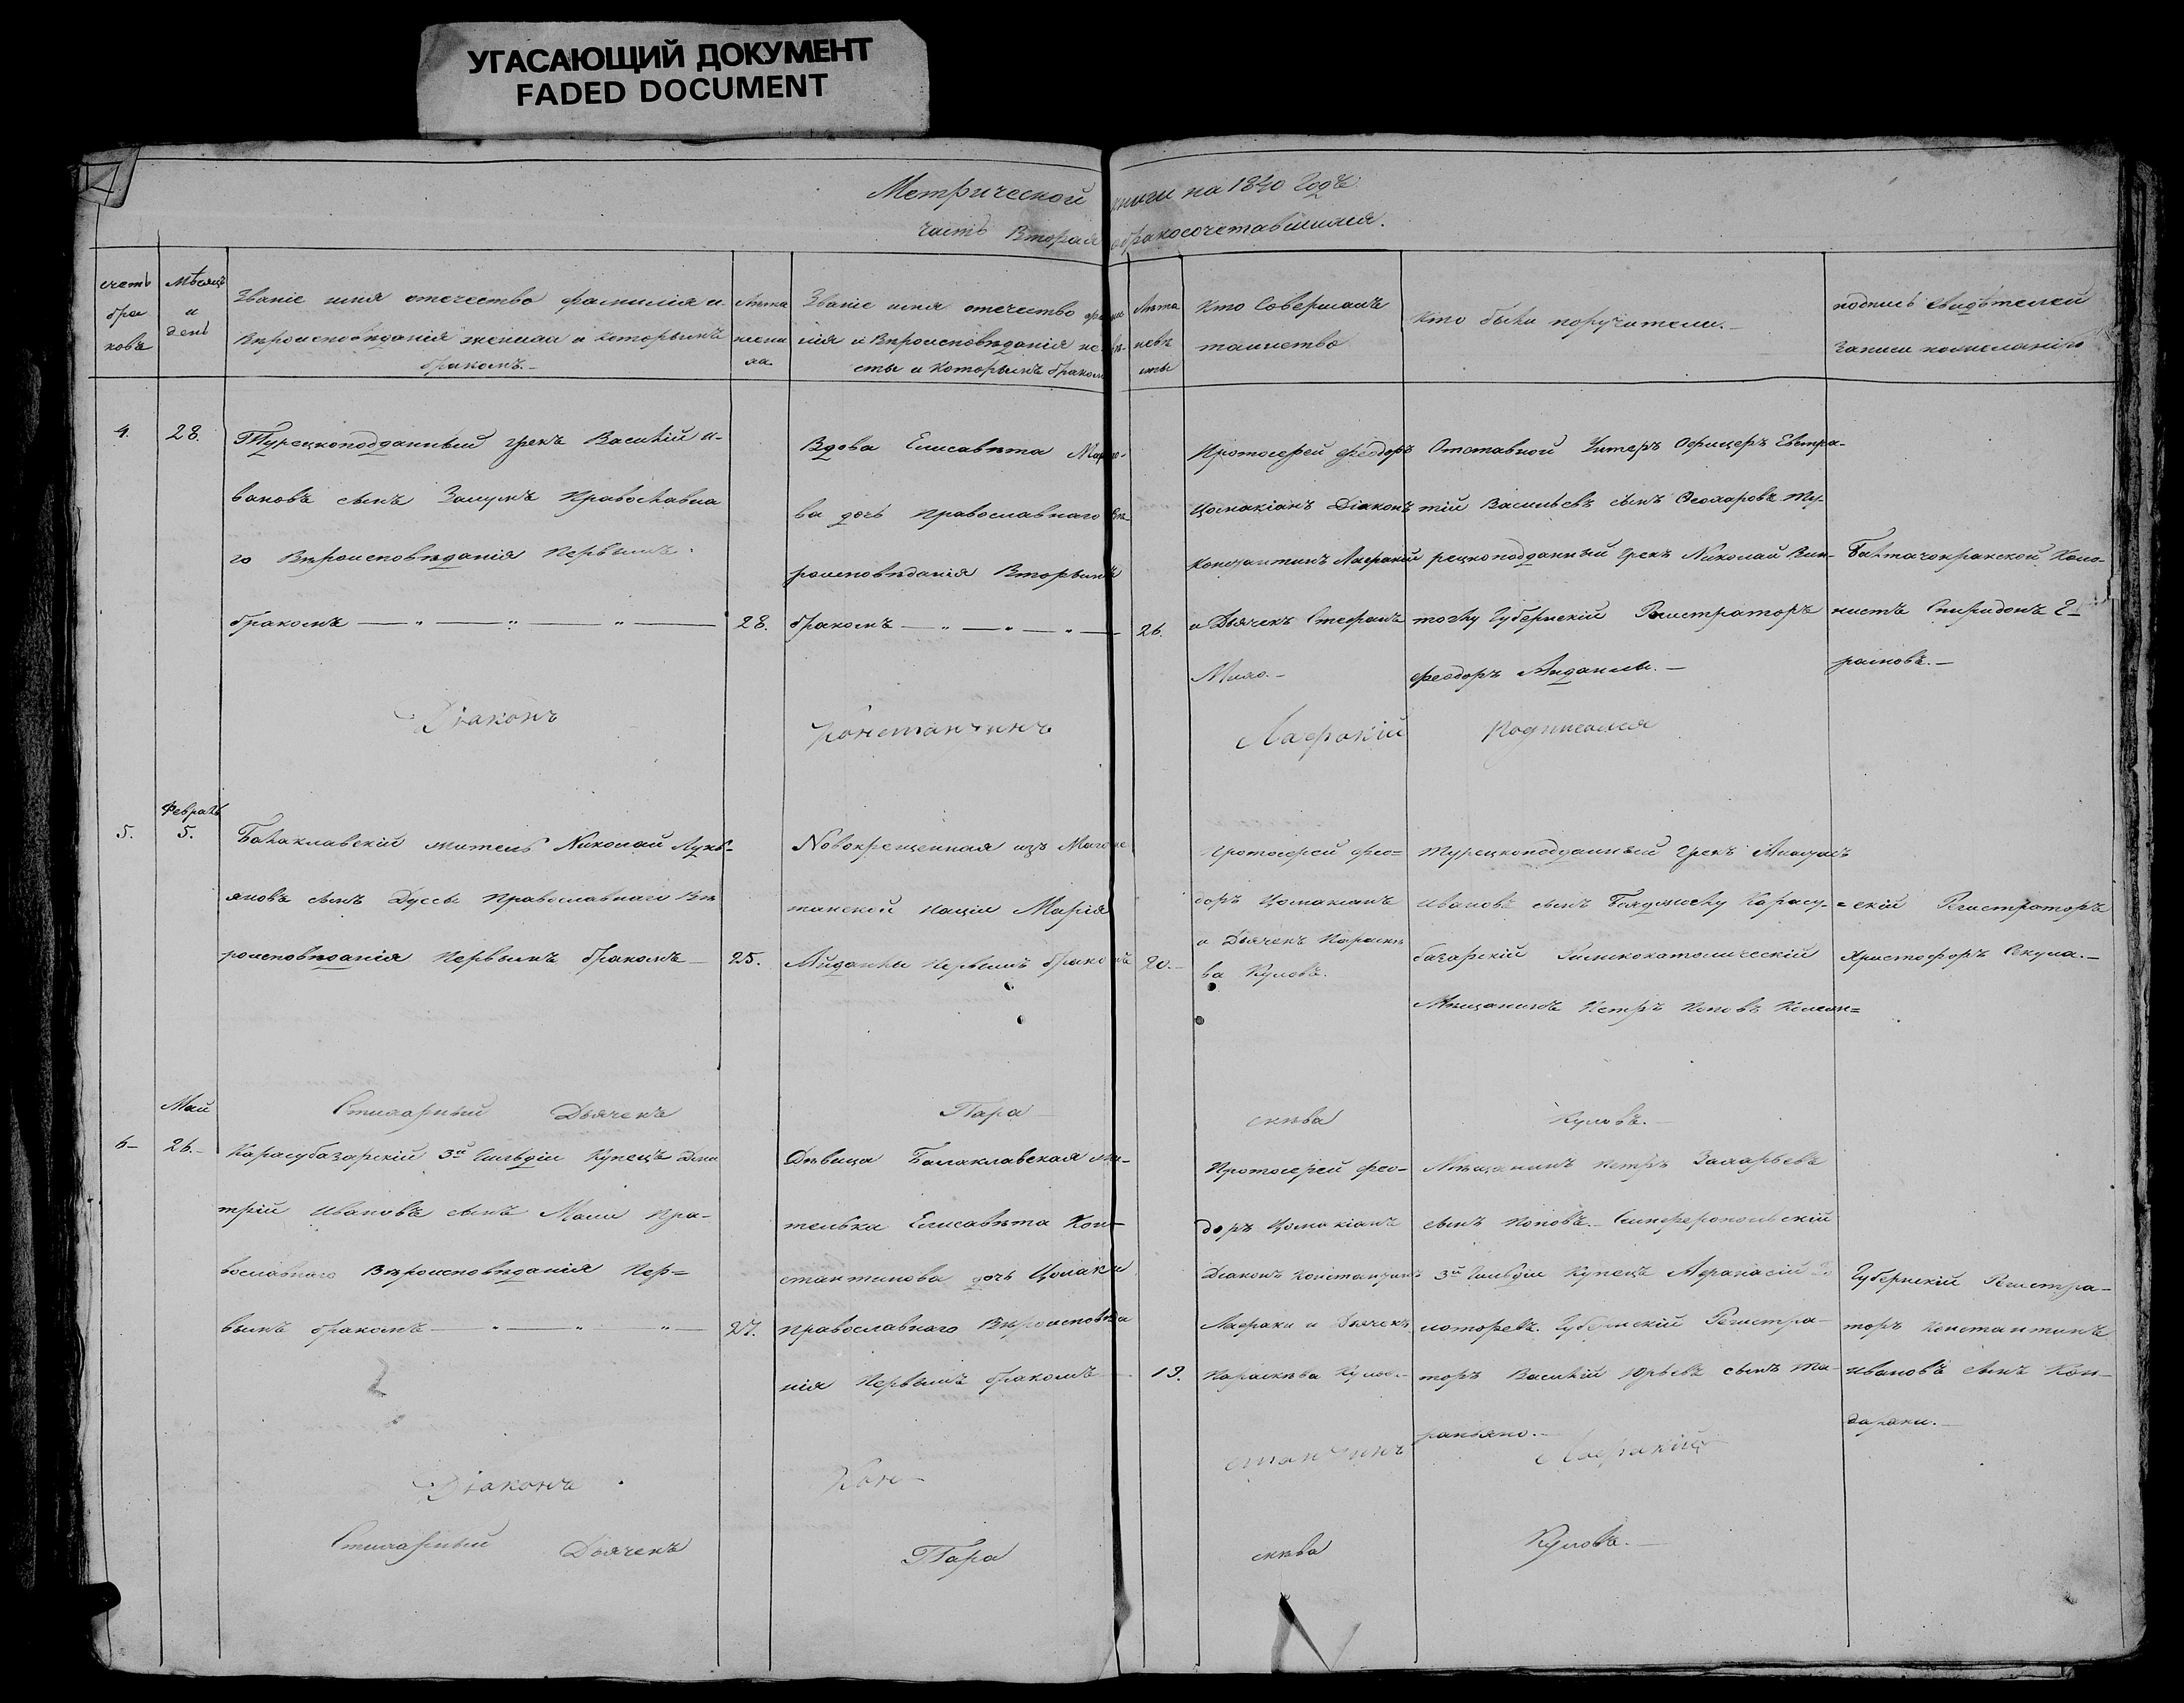 УГАСАЮЩИЙ ДОКУМЕНТ
FADED DOCUMENT
Метрической книги на 1840 годъ
часть Вторая обракосочетавшихся.
счетъ
бра
ковъ
Мѣсяцъ
и
день
Званіе имя отечество фамилія и
Вѣроисповѣданія жениха и которымъ
бракомъ.
Лѣта
жени
ха
Званіе имя отечество фами
лія и Вѣроисповѣданія невѣ-
сты и которымъ бракомъ
Лѣта
невѣ
сты
Кто Совершалъ
таинство
Кто были поручители.
подпись свидѣтелей
записи пожеланію
4.
28.
Турецкоподданный грекъ Василій и-
вановъ сынъ Православна
го Вѣроисповѣданія Первымъ
бракомъ
28.
Вдова Елисавета
ва дочь православнаго Вѣ
роисповѣданія Вторымъ
бракомъ
26.
Протоіерей Феодоръ
Цомакіанъ Діаконъ
Константинъ Лафракій
и Дьячекъ Стефанъ
Отставной Унтеръ Офицеръ Евстра-
тій Васильевъ сынъ Ту-
рецкоподданный грекъ Николай
Губернскій Регистраторъ
Феодоръ
Коло-
нистъ Спиридонъ
Діаконъ Константинъ Лафракій подписался
Февраль
5.
5.
Балаклавскій житель Николай Лукь-
яновъ сынъ Православнаго Вѣ
роисповѣданія Первымъ бракомъ
25.
Новокрещенная изъ Магоме
танской націи Марія
Первымъ бракомъ
20.
протоіерей Фео-
доръ Цомакіанъ
и Дьячекъ Параскѣ
ва Куловъ.
Турецкоподданный грекъ
Ивановъ сынъ Карасу-
базарскій
Мѣщанинъ Петръ Поповъ
скій Регистраторъ
Христофоръ Секула.
Стихарный Дьячекъ Пара скѣва Куловъ.
Май
6
26.
Карасубазарскій 3й Гильдіи Купецъ Дми
трій Ивановъ сынъ Пра-
вославнаго Вѣроисповѣданія Пер=
вымъ бракомъ
27.
Дѣвица Балаклавская жи-
телька Елисавѣта Кон-
стантинова дочь Цомаки
православнаго Вѣроисповѣда
нія Первымъ бракомъ
19.
Протоіерей Фео-
доръ Цомакіанъ
Діаконъ Константинъ
Лафраки и Дьячекъ
Параскѣва Кулов.
Мѣщанинъ Петръ Захарьевъ
сынъ Поповъ. Симферопольскій
3й Гильдіи Купецъ Афанасій
Губернскій Регистра-
торъ Василій Юрьевъ сынъ
Губернскій Регистра-
торъ Константинъ
Ивановъ сынъ Кон-
дараки.
Діаконъ Кон- стантинъ Лафракій
Стихарный Дьячекъ Пара скѣва Куловъ.